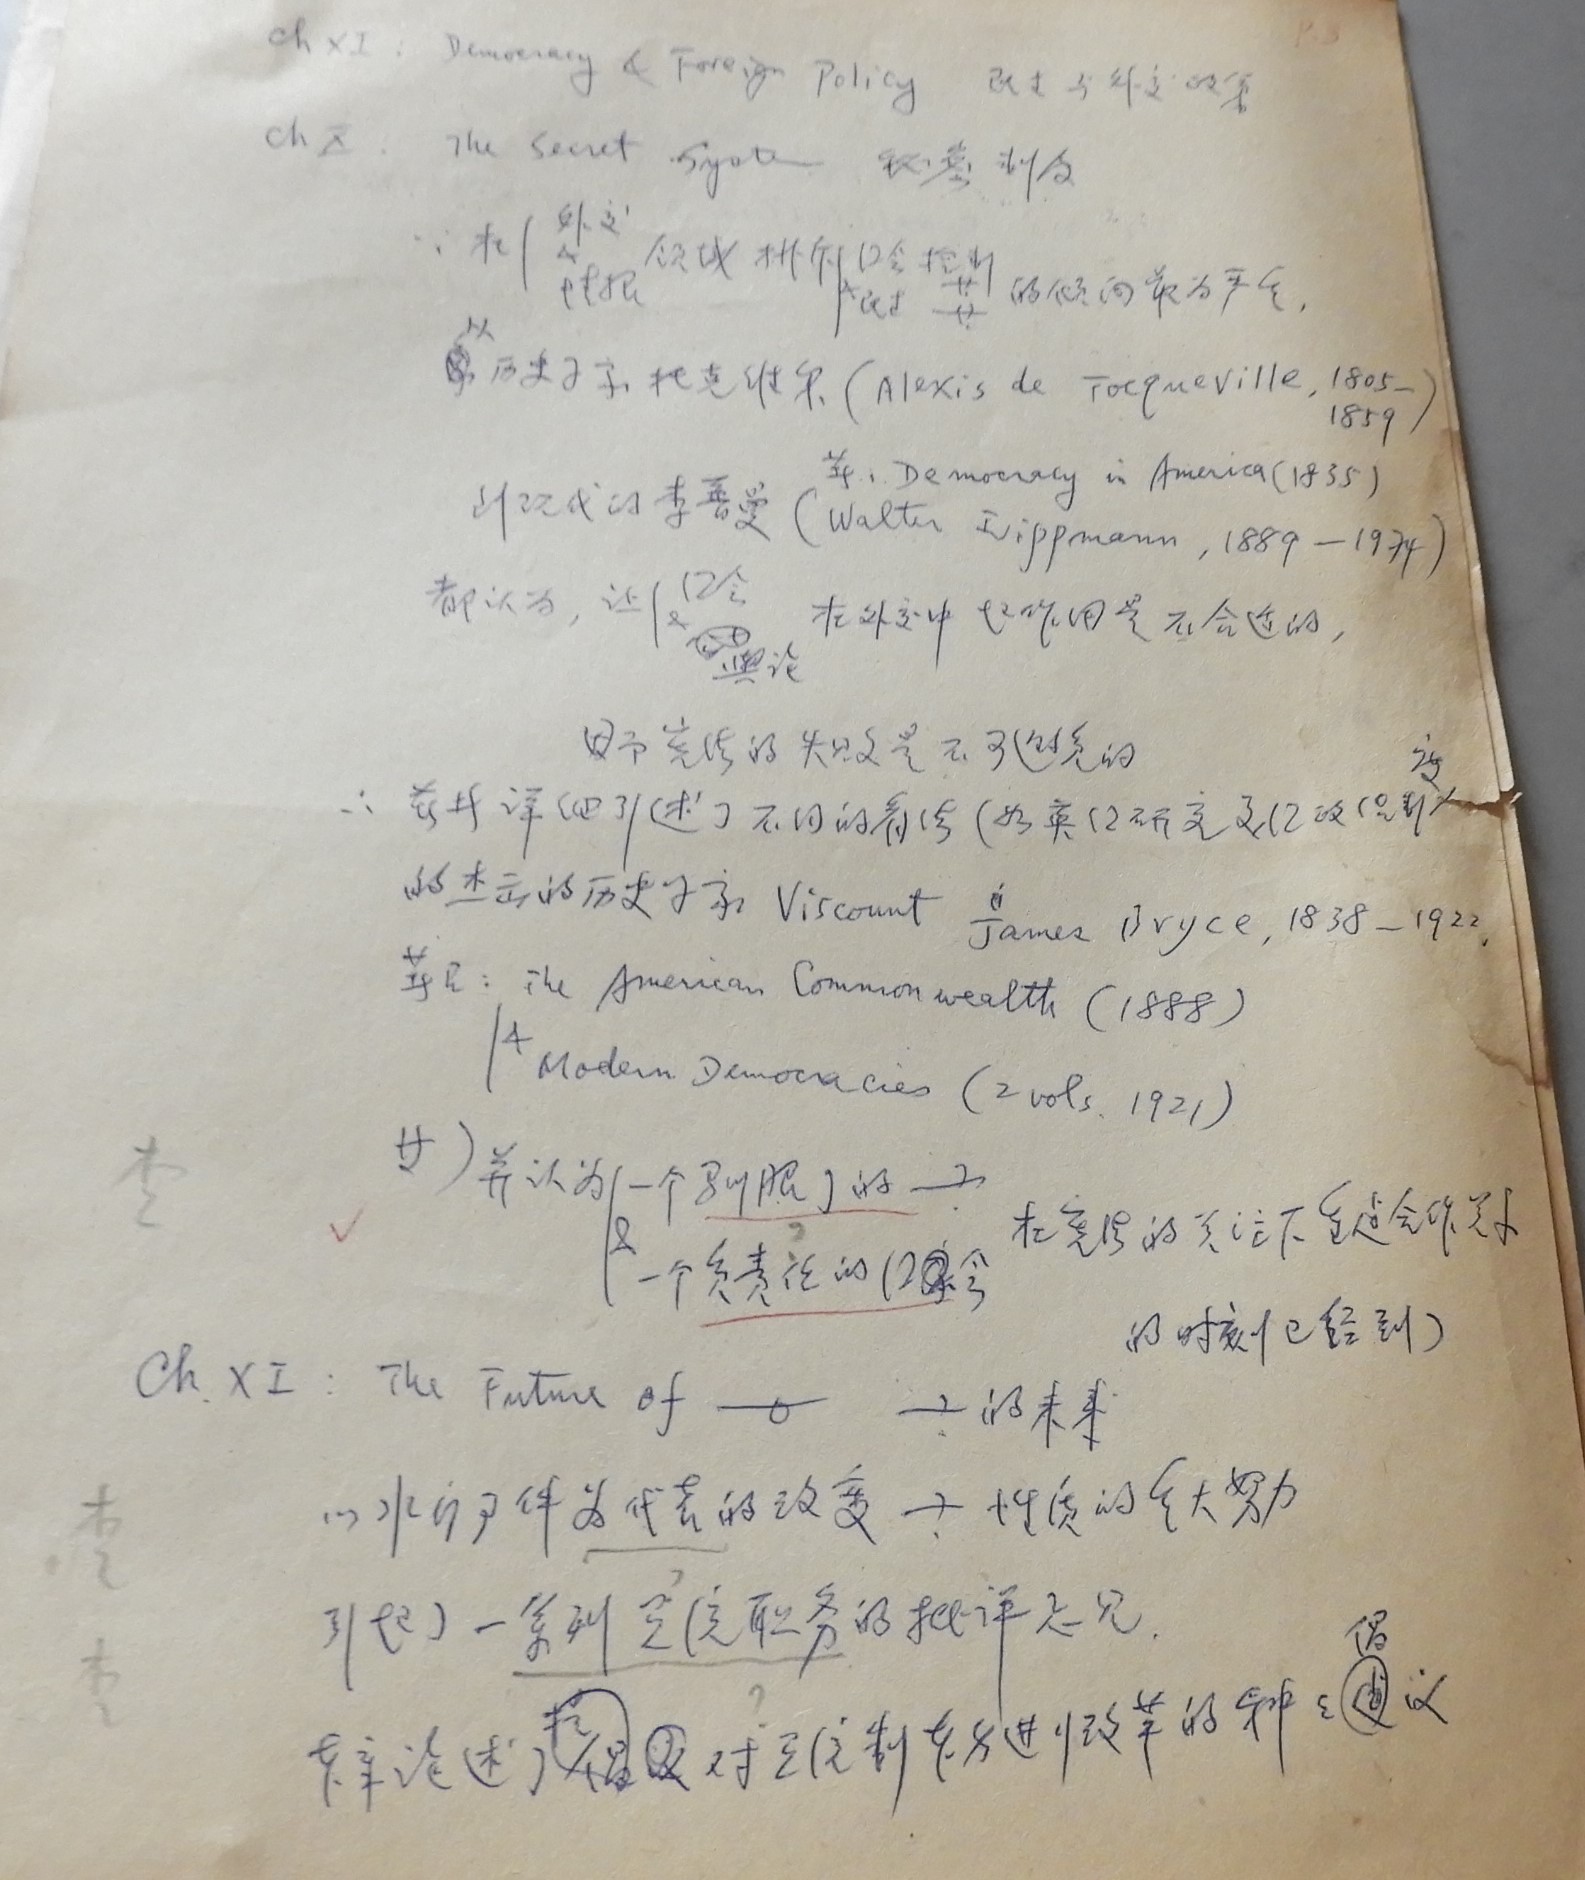 P.3
Ch XI: Democracy & Foreign Policy 民主与外交政策
Ch X: The Secret System 秘密制度
∵ 在 外交 & 情报 领域 排斥 国会 & 民主 控制 的倾向最为严重,
从历史学家托克维尔 (Alexis de Tocqueville, 1805–1859)
著: Democracy in America (1835)
到现代的李普曼 (Walter Lippmann, 1889–1974)
都认为, 让 国会 & 舆论 在外交中起作用是不合适的,
因而宪法的失败是不可避免的
∴ 详细引述了不同的看法 (如英国研究美国政治制度
的杰出的历史学家 Viscount James Bryce, 1838–1922,
著: The American Commonwealth (1888)
& Modern Democracies (2 vols. 1921)
) 并认为 一个驯服了的
& 一个负责任的国会 在宪法的关注下重趋合作
的时刻已经到了
Ch. XI: The Future of 的未来
∵ 水门事件为代表的改变 性质的重大努力
引起了一系列 职务的批评意见.
李 本章论述了 对 制 进行改革的种种倡议